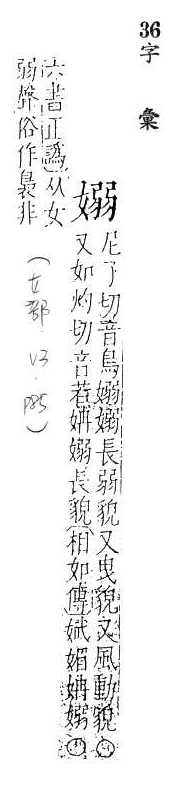 36
字彙
嫋
尼了切音鳥嫋嫋長弱貌又曳貌又風動貌
又如灼切音若姌嫋長貌相如傳娬媚姌嫋
六書正譌从女
弱聲俗作裊非
(女部 V3. P85)